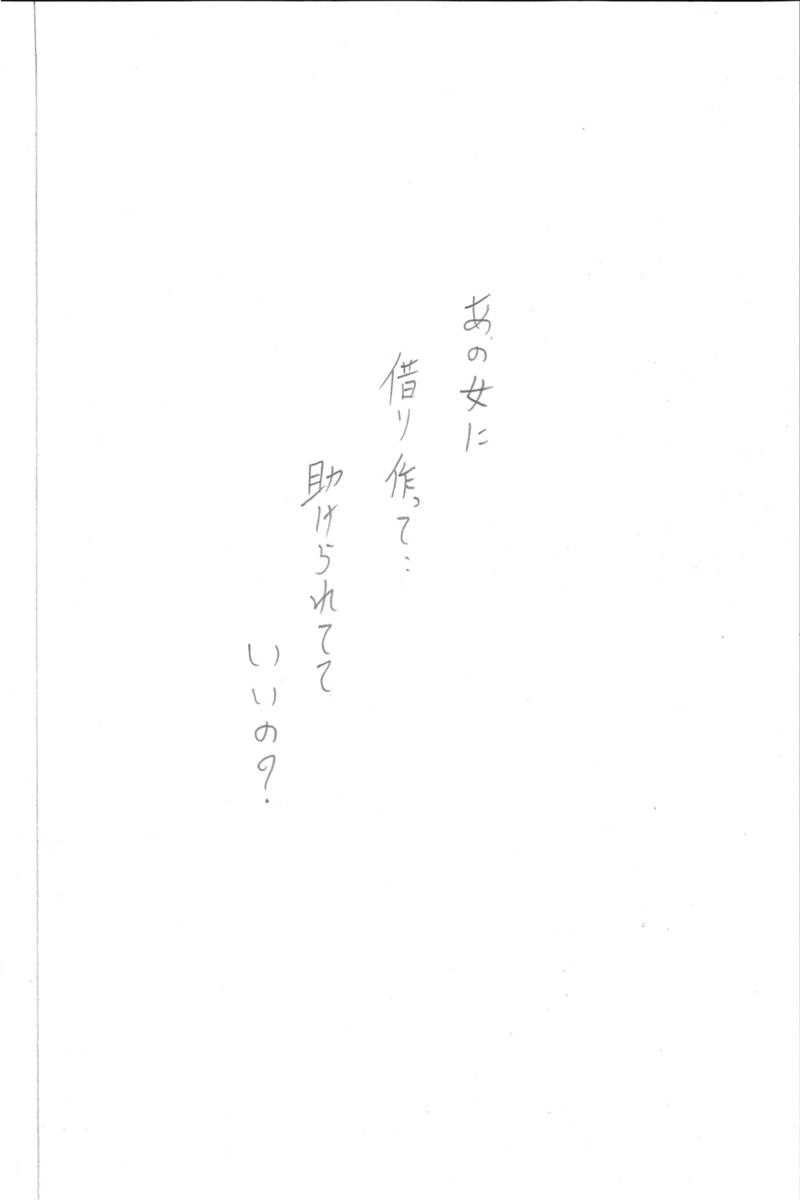 あの女に
借り作って…
助けられてて
いいの?